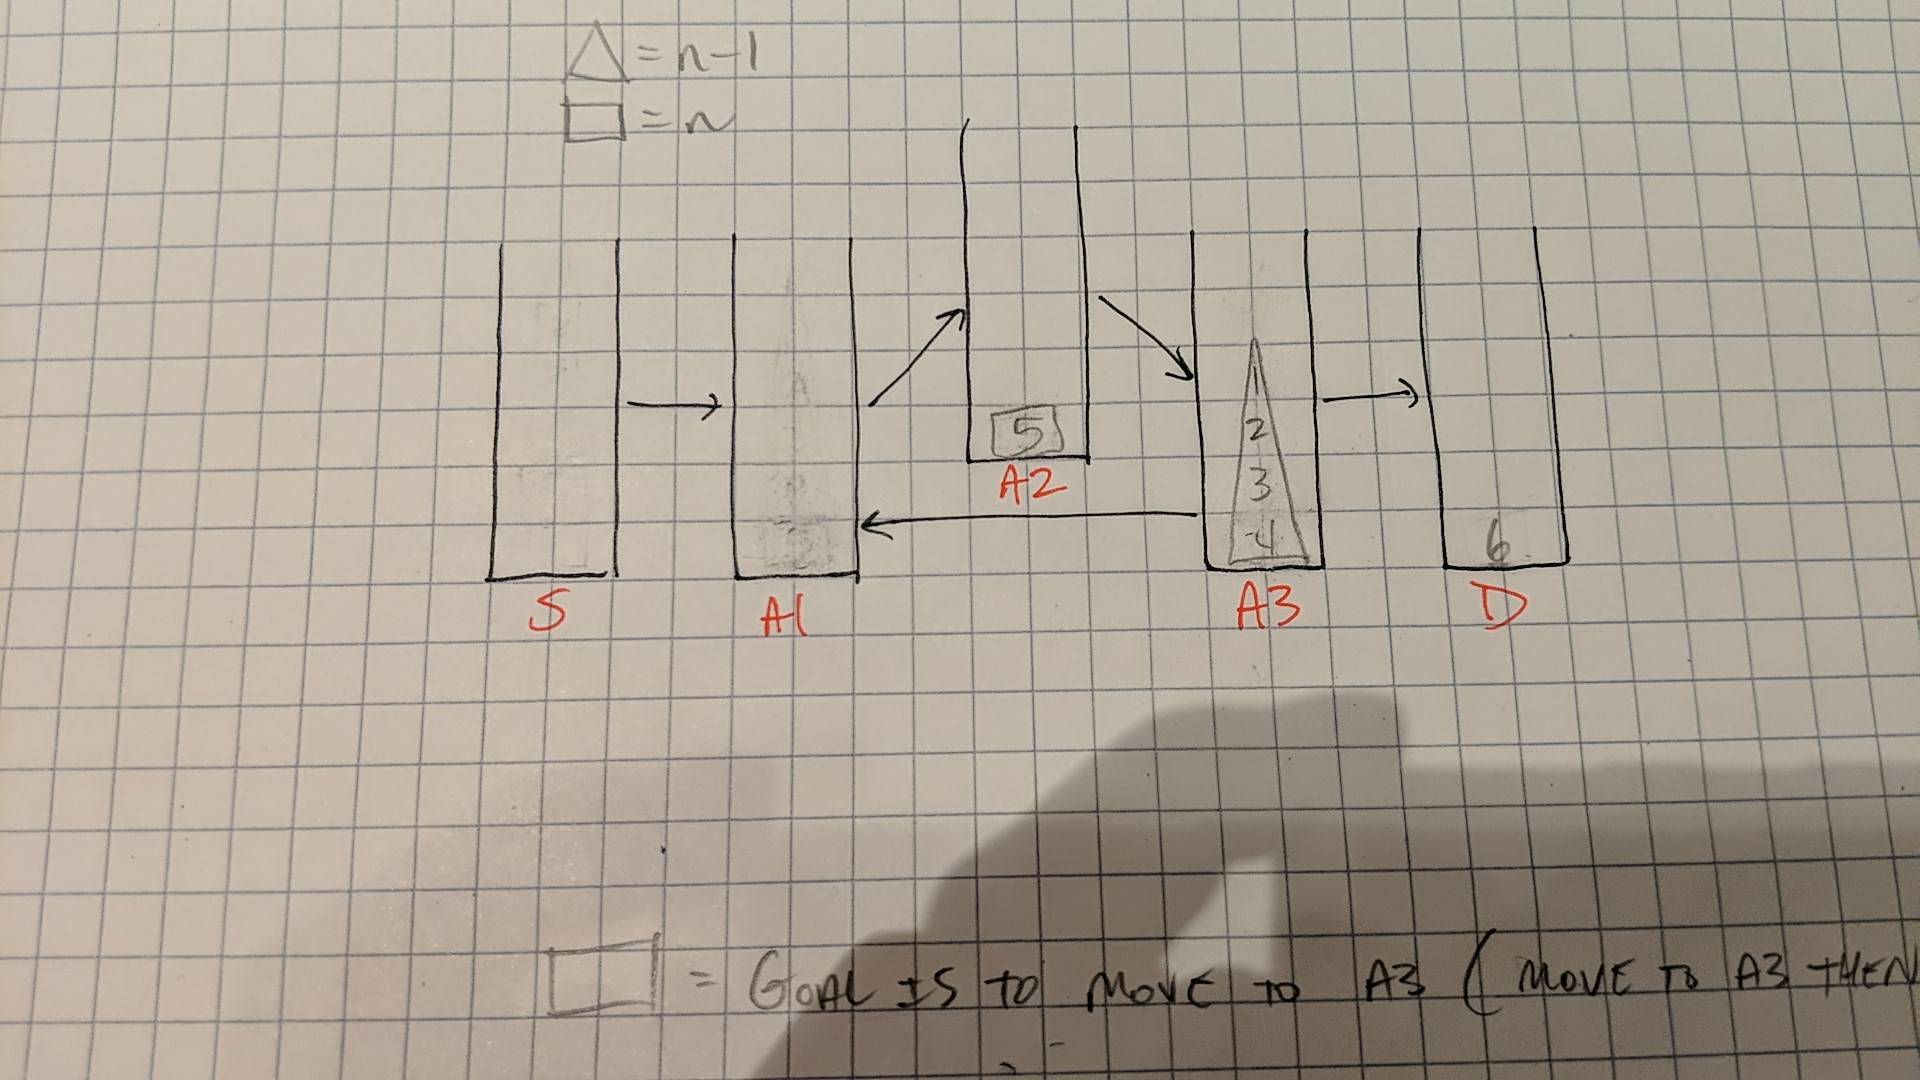 △ = n-1
□ = n
1
2
5
3
4
6
A2
S
A1
A3
D
□ = GOAL IS TO MOVE TO A3 (MOVE TO A3 THEN